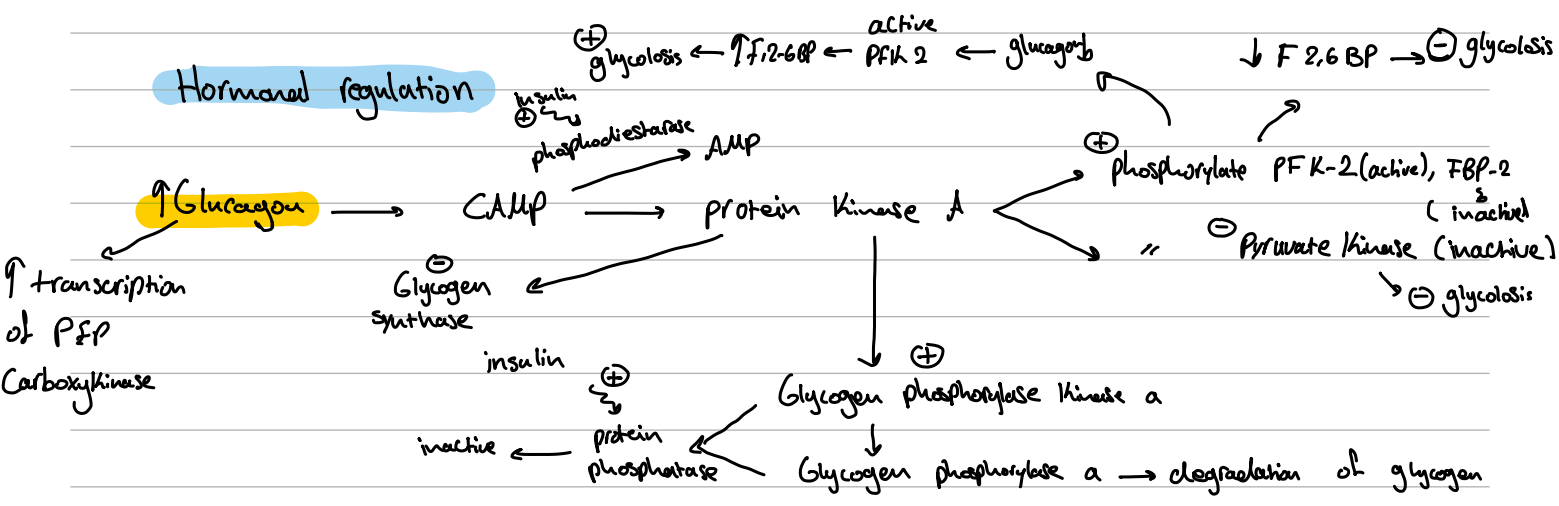 Hormonal regulation
⊕ glycolosis ← ↑F,2-6BP ← active PFK 2 ← glucagon
↓ F 2,6 BP → ⊖ glycolosis
insulin
⊕
phosphodiestarase
AMP
↑Glucagon → CAMP → protein kinase A
⊕ phosphorylate PFK-2(active), FBP-2
(inactive)
〃 ⊖ Pyruvate Kinase (inactive)
⊖ glycolosis
↑ transcription
of PEP
Carboxykinase
⊖
Glycogen
synthase
insulin
⊕
⊕
Glycogen phosphorylase kinase a
inactive ← protein
phosphatase
Glycogen phosphorylase a → degradation of glycogen